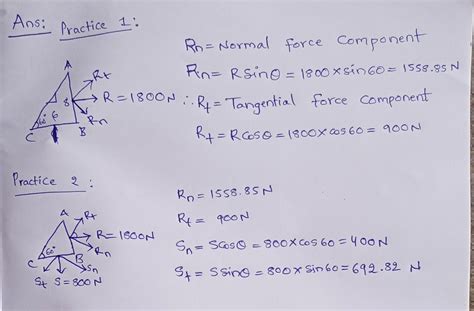 Ans: Practice 1:
Rn = Normal force Component
Rn = R Sinθ = 1800 × sin 60 = 1558.85 N
∴ Rt = Tangential force Component
Rt = R Cosθ = 1800 × cos 60 = 900N
A
Rt
R = 1800N
Rn
60°
C
B
Practice 2:
Rn = 1558.85 N
Rt = 900N
Sn = S Cosθ = 800 × cos 60 = 400N
St = S Sinθ = 800 × sin 60 = 692.82 N
A
Rt
R = 1800N
Rn
60°
C
B
Sn
St S = 800N